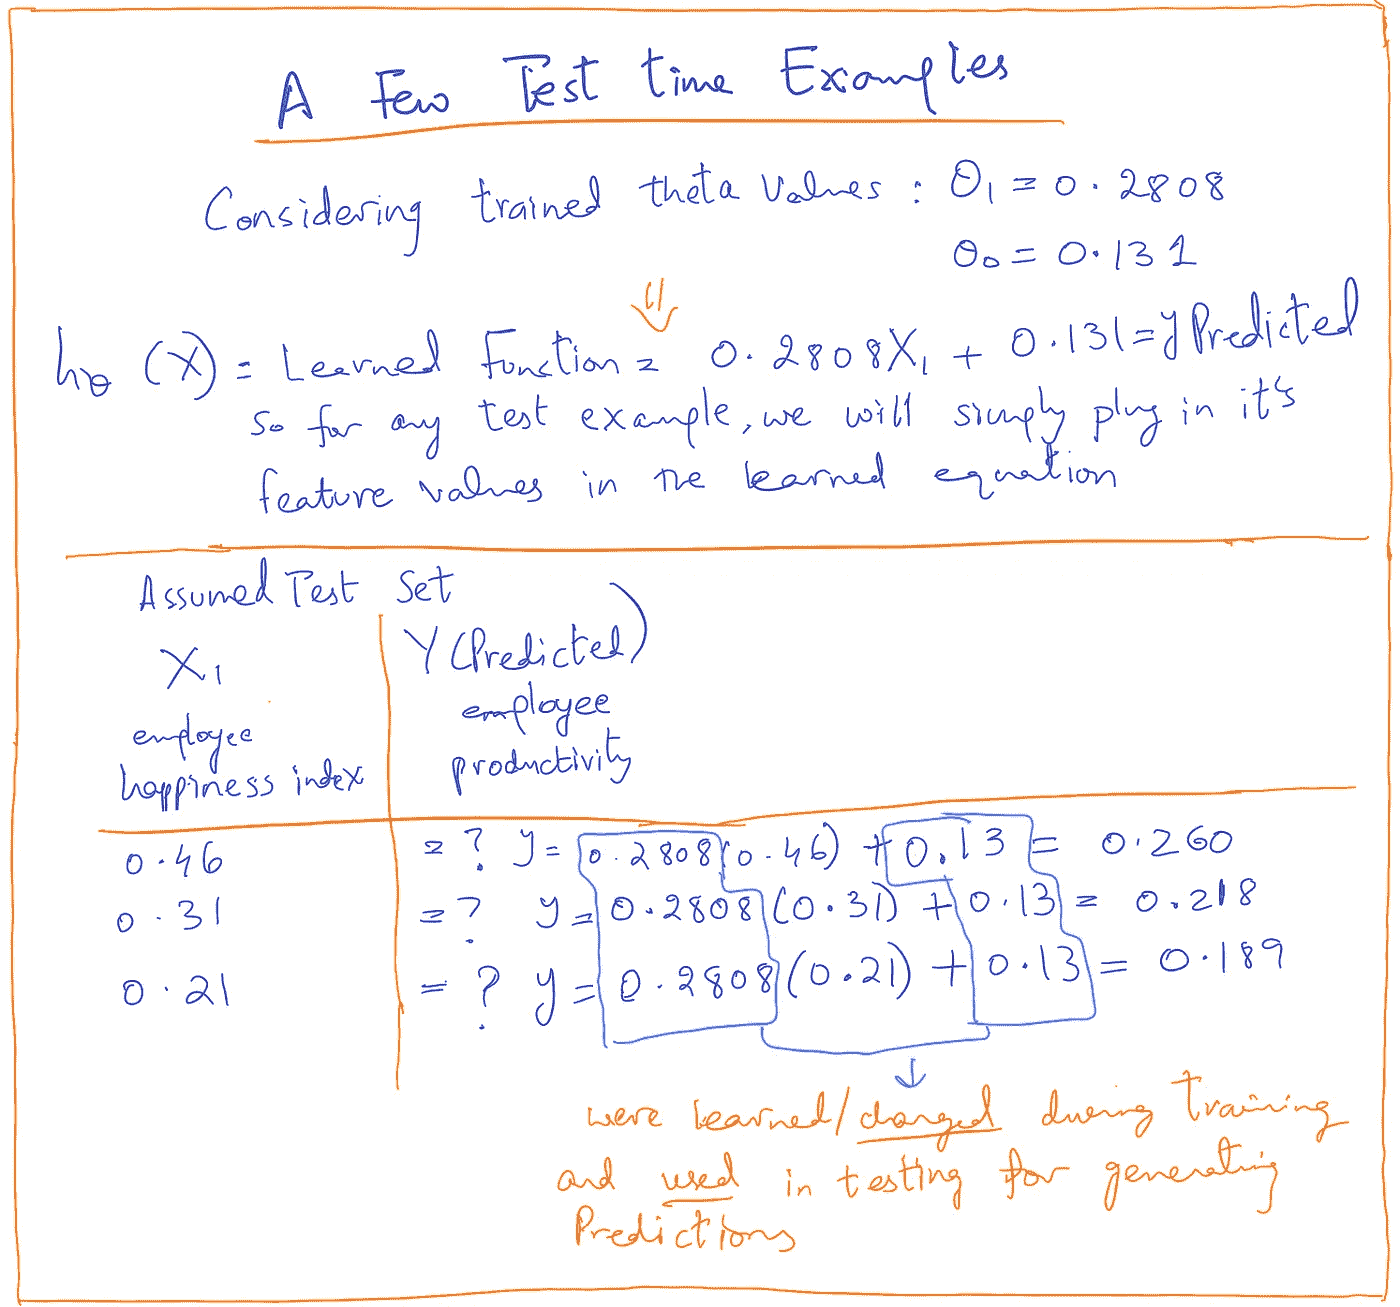 A Few Test time Examples
Considering trained theta values : θ₁ = 0.2808
θ₀ = 0.131
hθ (X) = Learned function = 0.2808X₁ + 0.131 = y Predicted
So for any test example, we will simply plug in it's
feature values in the learned equation
Assumed Test Set
X₁
employee
happiness index
Y (Predicted)
employee
productivity
0.46 = ? y = 0.2808(0.46) + 0.13 = 0.260
0.31 = ? y = 0.2808(0.31) + 0.13 = 0.218
0.21 = ? y = 0.2808(0.21) + 0.13 = 0.189
were learned/changed during training
and used in testing for generating
Predictions